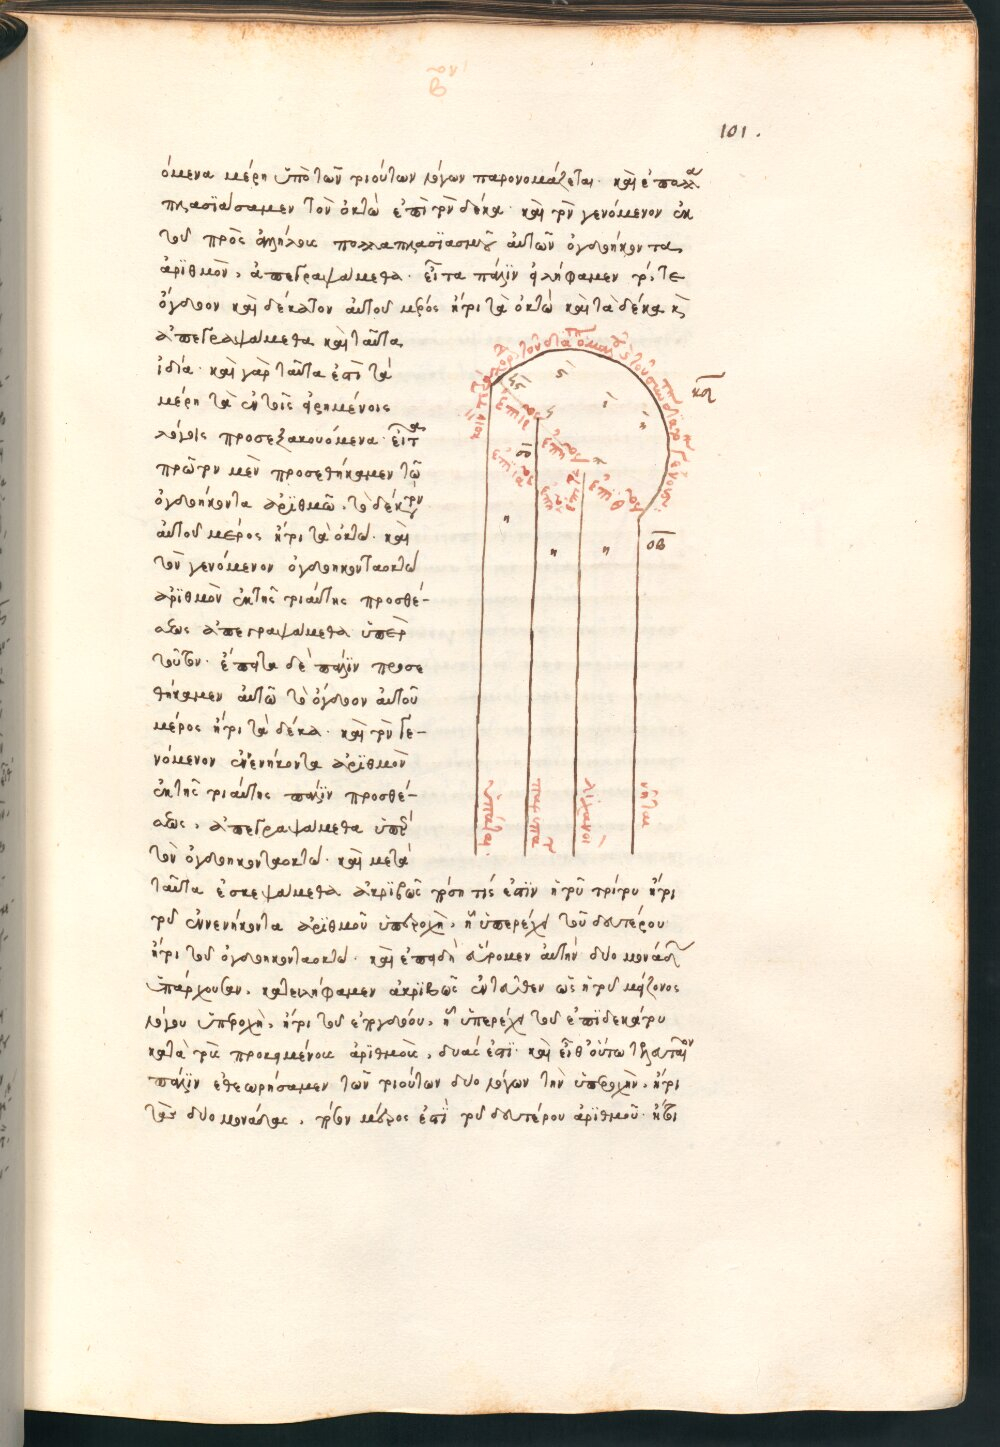 101.
όμενα μέρη ὑπὸ τῶν τοιούτων λόγων παρονομάζεται· καὶ ἐπολλα
πλασϊάσαμεν τὸν ὀκτὼ ἐπὶ τὸν δέκα· καὶ τὸν γενόμενον ἐκ
τοῦ πρὸς ἀλλήλους πολλαπλασϊασμοῦ αὐτῶν ὀγδοήκοντα
ἀρϊθμὸν, ἀπεγραψάμεθα· εἶτα πάλϊν εἰλήφαμεν τό, τε
ὄγδοον καὶ δέκατον αὐτοῦ μέρος ἤτοι τὰ ὀκτὼ καὶ τὰ δέκα κ
ἀπεγραψάμεθα καὶ ταῦτα
ἰδία· καὶ γὰρ ταῦτα ἐστὶ τὰ
μέρη τὰ ἐν τοῖς εἰρημένοις
λόγοις προσεξακουόμενα· εἶτα
πρῶτον μὲν προσεθήκαμεν τῶ
ὀγδοήκοντα ἀρϊθμῶ, τὸ δέκατον
αὐτοῦ μέρος ἤτοι τὰ ὀκτώ· καὶ
τὸν γενόμενον ὀγδοηκονταοκτὼ
ἀρϊθμὸν ἐκ τῆς τοιαύτης προσθέ-
σεως ἀπεγραψάμεθα ὑπὲρ
τοῦτον· ἔπειτα δὲ πάλϊν προσε
θήκαμεν αὐτῶ τὸ ὄγδοον αὐτοῦ
μέρος ἤτοι τὰ δέκα· καὶ τὸν γε-
νόμενον ἐνενήκοντα ἀρϊθμὸν
ἐκ τῆς τοιαύτης πάλϊν προσθέ-
σεως, ἀπεγραψάμεθα ὑπὲρ
τὸν ὀγδοηκονταοκτώ· καὶ μετὰ
ταῦτα ἐσκεψάμεθα ἀκρϊβῶς πόση τίς ἐστϊν ἡ τοῦ τρίτου ἤτοι
τοῦ ἐννενήκοντα ἀρϊθμοῦ ὑπεροχὴ, ἣ ὑπερέχει τοῦ δευτέρου
ἤτοι τοῦ ὀγδοηκονταοκτώ· καὶ ἐπειδὴ εὕρομεν αὐτὴν δύο μονάδας
ὑπάρχουσαν, κατειλήφαμεν ἀκρϊβῶς ἐντεῦθεν ὡς ἡ τοῦ μείζονος
λόγου ὑπεροχὴ, ἤτοι τοῦ ἐπογδόου, ἣ ὑπερέχει τοῦ ἐπϊδεκάτου
κατὰ τοὺς προκειμένους ἀρϊθμοὺς, δυάς ἐστϊ· καὶ εἶθ' οὕτω
πάλϊν ἐθεωρήσαμεν τῶν τοιούτων δύο λόγων τὴν ὑπεροχὴν, ἤτοι
τὰς δύο μονάδας, πόστον μέρος ἐστὶ τοῦ δευτέρου ἀρϊθμοῦ· ἤτοι
οβ
ὑπάται
παρυπάται
λίχανοι
νῆται